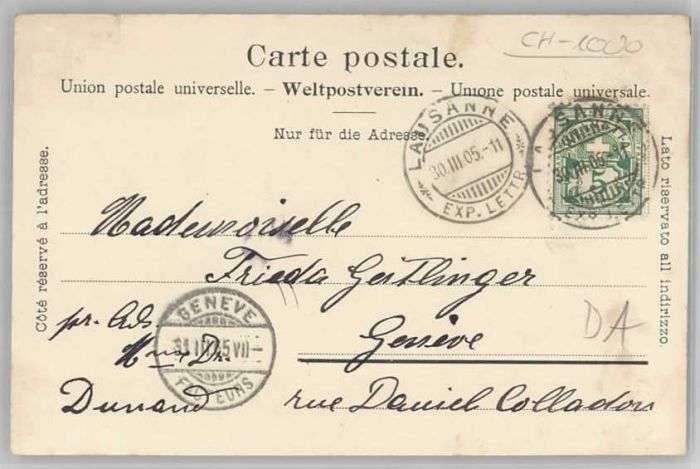 CH-1000
Carte postale.
Union postale universelle. – Weltpostverein. – Unione postale universale.
Nur für die Adresse.
Côté réservé à l'adresse.
Lato riservato all indirizzo.
LAUSANNE
30.III.05.-11
EXP. LETTR.
LAUSANNE
5
Mademoiselle
Frieda Geitlinger
GENEVE
31.III.05 VII-
FACTEURS
pr. Ads.
Genève
DA
Dunand rue Daniel Colladon